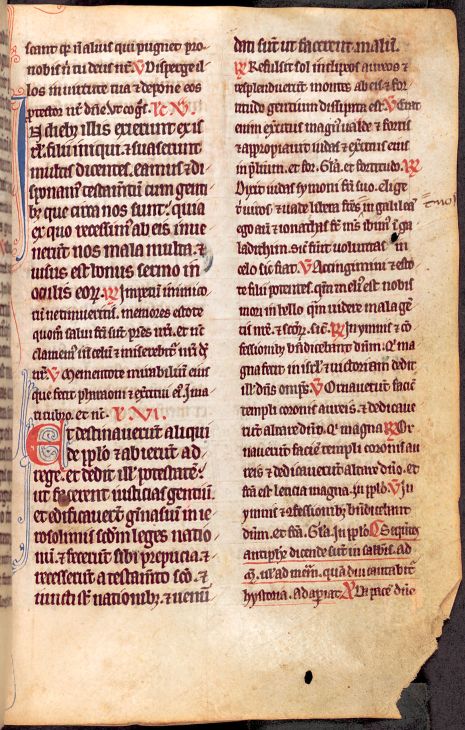 scant qr nalius qui pugnet pro
nobis n tu deus nr. V Disperge il
los in uirtute tua et depone eos
protector nr dne. Vt cogt. Lc XV.
N dieb illis exierunt ex is
rl filii iniqui. et suaserunt
multis dicentes. eamus et di
sponamus testamtu cum genti
b que circa nos sunt. quia
ex quo recessim ab eis inue
nerunt nos mala multa. et
uisus est bonus sermo in
oculis eoz. R Impetu inimico
ru ne timueritis. memores estote
quom salui fcti sut pres nri. et nc
clamem in celu et miserebit nri ds
nr. V Mementote mirabiliu eius
que fecit pharaoni et exercitui ei. I ma
ri rubro. et nc. L XVI.
Et destinauerunt aliqui
de pplo et abierut ad
rege. et dedit ill potestate.
ut facerent iusticias gentiu.
et edificauert gimasiu in ie
rosolimis scdm leges natio
nu. et fecerut sibi prepucia. et
recesserut a testamto sco. et
iuncti st nationib. et uenu
dati sut ut facerent malu.
R Refulsit sol in clipeos aureos et
resplenduerut montes ab eis et for
titudo gentium dissipata est. V Erat
enim exercitus magn ualde et fortis
et appropiauit iudas et exercitus eius
in prelium. et for. Gla. et fortitudo. R
Dixit iudas symoni fri suo. elige
t uiros et uade libera fres in galilea
ego aut et ionathas fr ms ibim i ga
laditim. Sic fuit uoluntas in
celo sic fiat. V Accingimini et esto
te filii potentes. qm meli est nobis
mori in bello qm uidere mala ge
tis nre. et scoz. Sic. R In ymnis et co
fessionib bndicebant dnm. Q ma
gna fecit in isrl. et uictoriam dedit
ill dns omps. V Ornauerut facie
templi coronis aureis. et dedicaue
rut altare dno. Q magna. R Or
nauerut facie templi coronis au
reis et dedicauerut altare dno. et
fca est leticia magna in pplo. V In
ymnis et cofessionib bndicebant
dnm. et fca. Gla. In pplo. Sequntes
antiphe dicende sut in sabbis. ad
ul ad quadiu cantabit
hystoria. Adaperiat. A Da pace dne